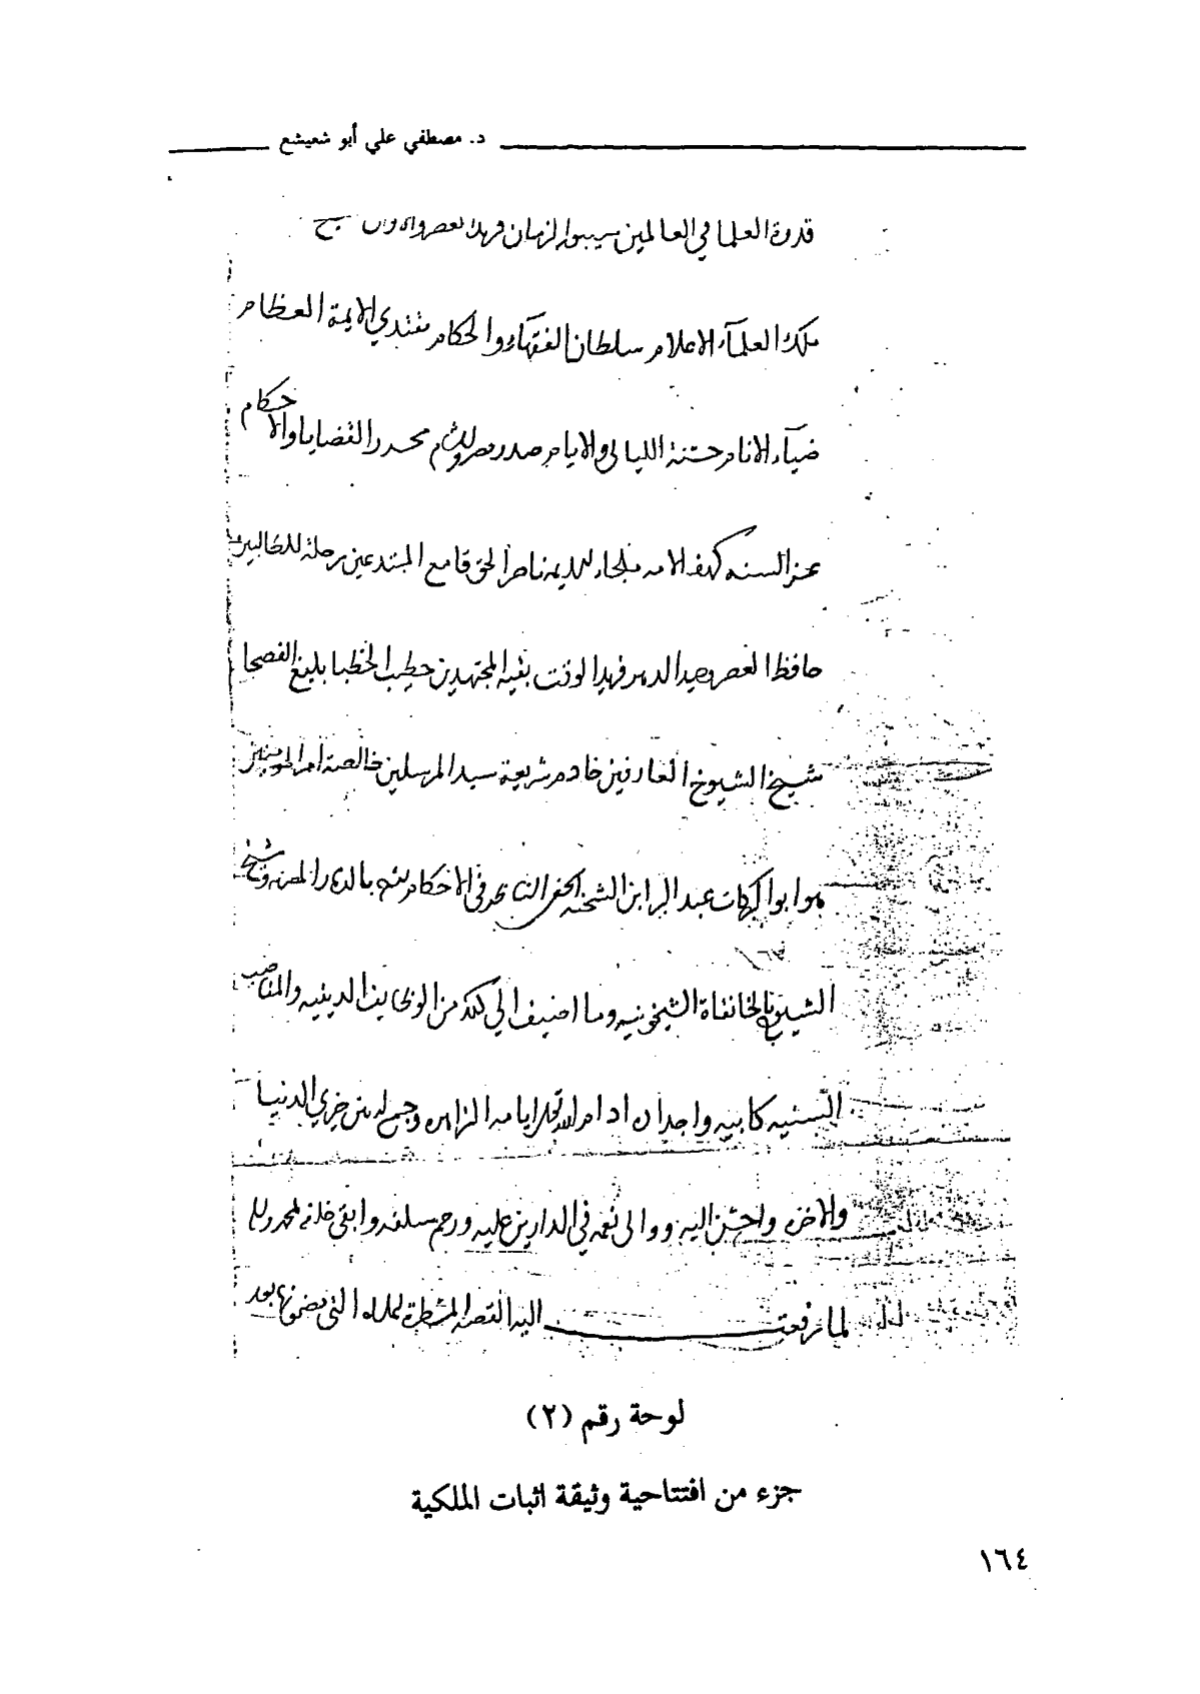 د. مصطفي علي أبو شعيشع
قدوة العلما في العالمين سيبويه الزمان فريد العصر والاوان شيخ
ملك العلمآء الاعلام سلطان الفقهآء والحكام مقتدي الايمة العظام
ضيآء الانام حسنة الليالي والايام صدر مصر والشام محرر القضايا والاحكام
عز السنه كهف الامه ملجاء ناصر الحق قامع المبتدعين رحلة للطالبين
حافظ العصر وحيد الدهر فريد الوقت بقيه المجتهدين خطيب الخطبا بليغ الفصحا
شيخ الشيوخ العارفين خادم شريعة سيد المرسلين خالصة امير المومنين
هو ابوا البركات عبد البر ابن الشحنه الحنفي الناظر في الاحكام الشرعيه بالديار المصريه وشيخ
الشيوخ بالخانقاة الشيخونيه وما اضيف الي ذلك من الوظايف الدينيه والمناصب
السنيه كابيه واجداده ادام الله تعالى ايامه الزاهره وجمع له بين خيري الدنيا
والاخره واحسن اليه ووالى نعمه في الدارين عليه ورحم سلفه وابقى خلفه بمحمد واله
لما رفعت اليه القصه المسطرة باعلاه التي مضمونها بعد
لوحة رقم (٢)
جزء من افتتاحية وثيقة اثبات الملكية
١٦٤